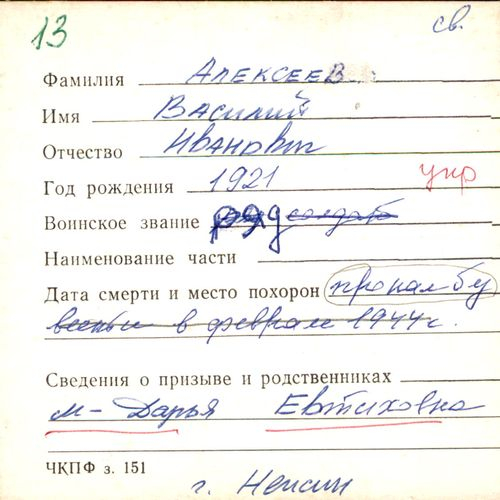 13 св.
Фамилия АЛЕКСЕЕВ
Имя ВАСИЛИЙ
Отчество ИВАНОВИЧ
Год рождения 1921 укр
Воинское звание ряд солдат
Наименование части
Дата смерти и место похорон пропал б/у
вести в феврале 1944 г.
Сведения о призыве и родственниках
м - Дарья Евтиховна
ЧКПФ з. 151
г.